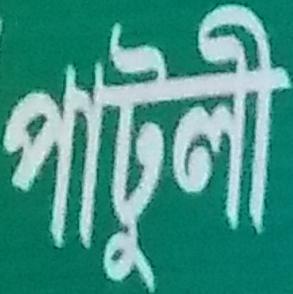 পাটুলী